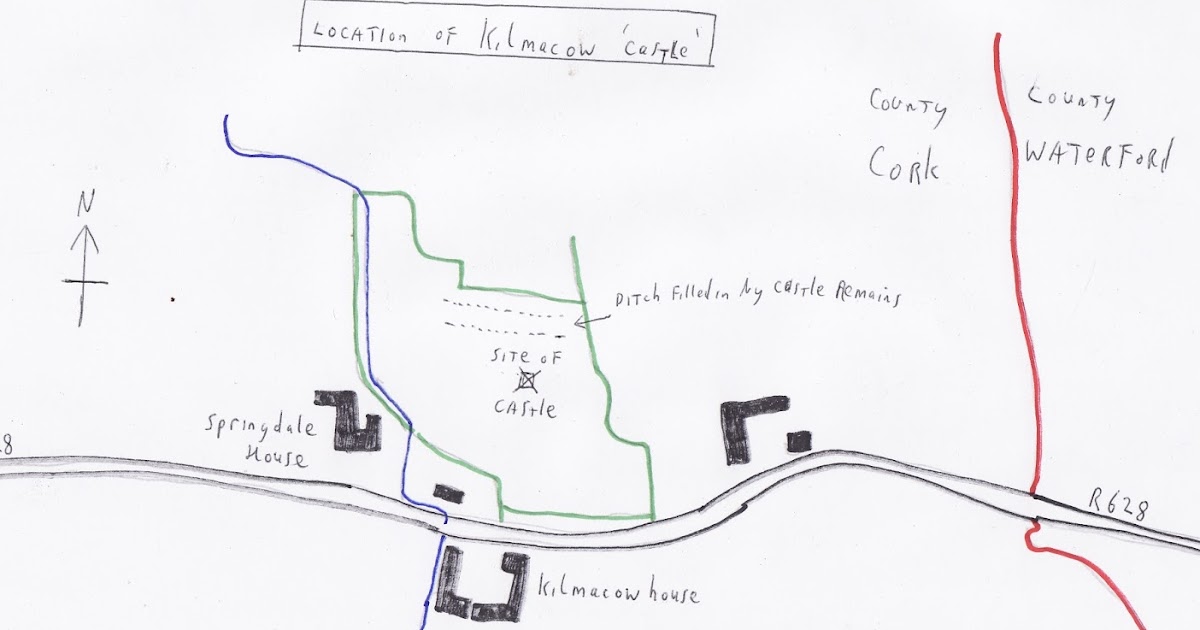 LOCATION OF KilMACOW 'CASTLE'
COUNTY CORK
COUNTY WATERFORD
N
DITCH Filled in by CASTLE REMAINS
SITE OF
CASTLE
Springdale
House
28
R628
Kilmacow house